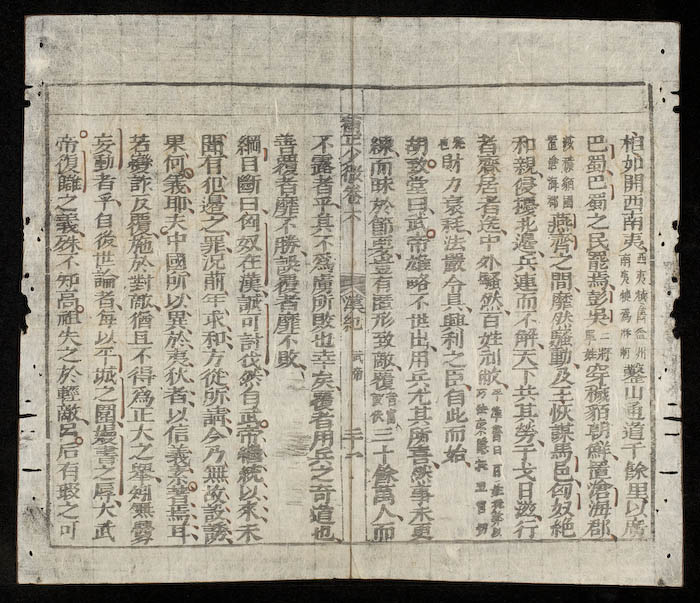 相如開西南夷西夷授屬益州南夷犍爲牂柯鑿山通道千餘里以廣
巴蜀巴蜀之民罷焉彭吳穿穢貊朝鮮置滄海郡
燕齊之間靡然騷動及王恢謀馬邑匈奴絶
和親侵擾北邊兵連而不解天下共其勞干戈日滋行
者齎居者送中外騷然百姓刓敝
財力衰耗法嚴令具興利之臣自此而始
胡致堂曰武帝雄略不世出用兵尤其所喜然事未更
練而昧於節要豈有匿形致敵覆三十餘萬人而
不露者乎其不爲虜所敗也幸矣覆者用兵之奇道也
善覆者靡不勝誤覆者靡不敗
綱目斷曰匈奴在漢誠可討伐然自武帝繼統以來未
聞有犯邊之罪況前年求和方從所請今乃無故設誘
果何義耶夫中國所以異於夷狄者以信義素著焉耳
若變詐反覆施於對敵猶且不得爲正大之舉矧無釁
妄動者乎自後世論者每以平城之圍嫚書之辱大武
帝復讎之義殊不知高祖失之於輕敵呂后有瑕之可
卷六
漢紀
武帝
二十一